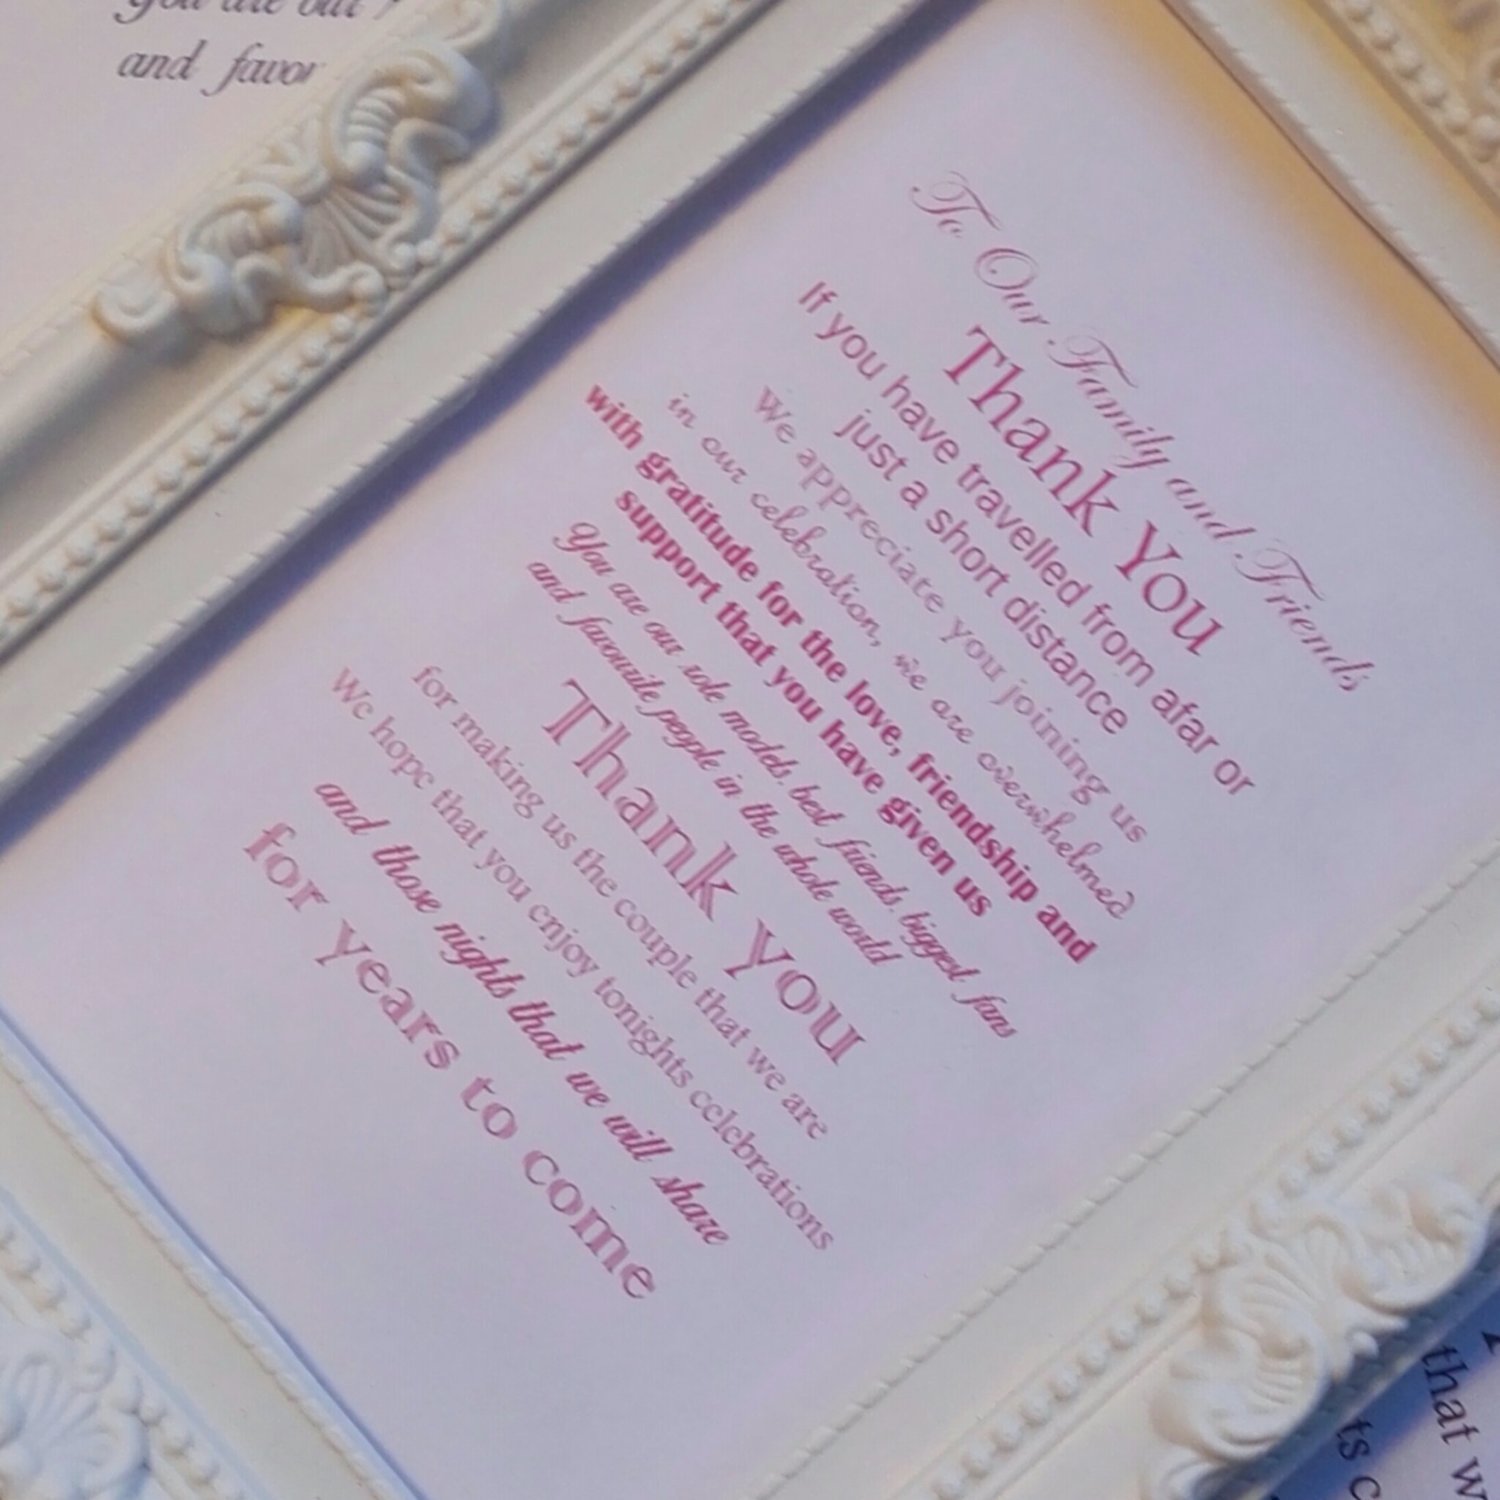 You are our
and favor
To Our Family and Friends
Thank You
If you have travelled from afar or
just a short distance
We appreciate you joining us
in our celebration, we are overwhelmed
with gratitude for the love, friendship and
support that you have given us
You are our role models, best friends, biggest fans
and favourite people in the whole world
Thank you
for making us the couple that we are
We hope that you enjoy tonights celebrations
and those nights that we will share
for years to come
that w
ts c